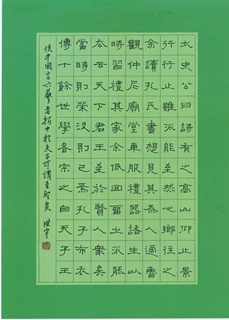 太史公曰詩有之高山仰止景
行行止雖不能至然心鄉往之
余讀孔氏書想見其為人適魯
觀仲尼廟堂車服禮器諸生以
時習禮其家余低回留之不能
去云天下君王至於賢人眾矣
當時則榮沒則已焉孔子布衣
傳十餘世學者宗之自天子王
侯中國言六藝者折中於夫子可謂至聖矣